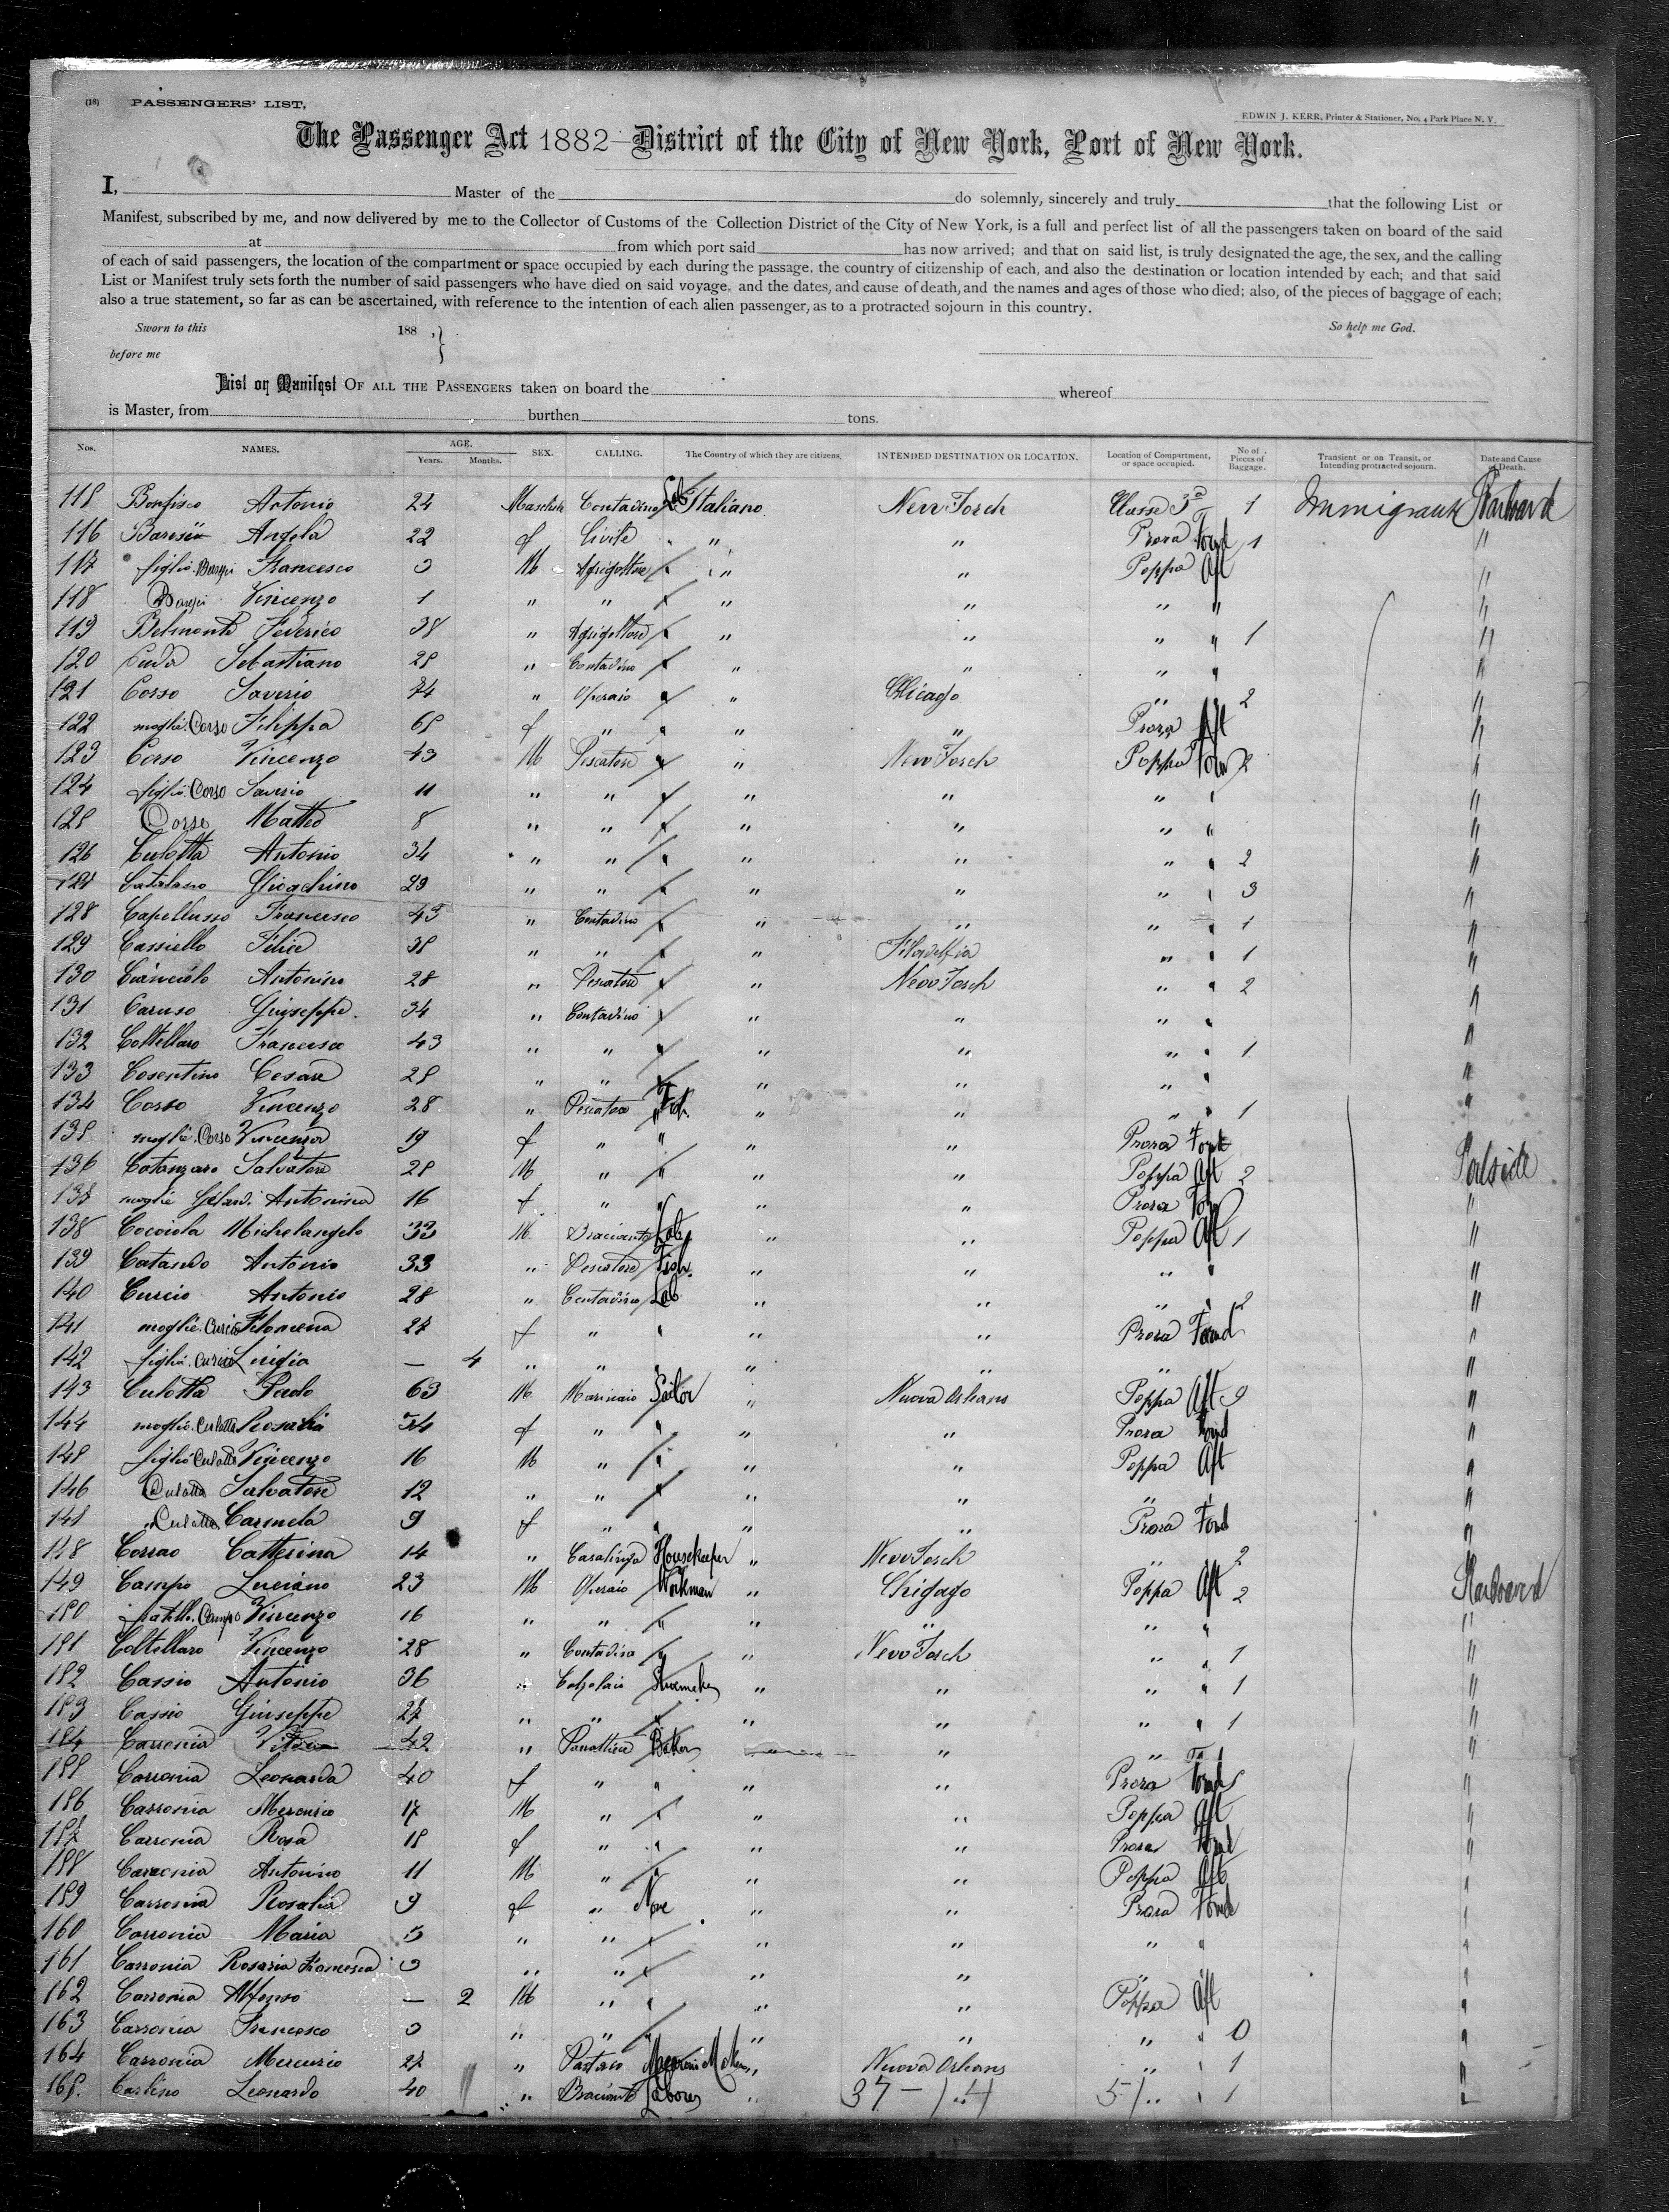 (18) PASSENGERS' LIST,
EDWIN J. KERR, Printer & Stationer, No. 4 Park Place N. Y.
The Passenger Act 1882—District of the City of New York, Port of New York.
I, Master of the do solemnly, sincerely and truly that the following List or
Manifest, subscribed by me, and now delivered by me to the Collector of Customs of the Collection District of the City of New York, is a full and perfect list of all the passengers taken on board of the said
at from which port said has now arrived; and that on said list, is truly designated the age, the sex, and the calling
of each of said passengers, the location of the compartment or space occupied by each during the passage. the country of citizenship of each, and also the destination or location intended by each; and that said
List or Manifest truly sets forth the number of said passengers who have died on said voyage, and the dates, and cause of death, and the names and ages of those who died; also, of the pieces of baggage of each;
also a true statement, so far as can be ascertained, with reference to the intention of each alien passenger, as to a protracted sojourn in this country.
Sworn to this 188 , } So help me God.
before me
List or Manifest OF ALL THE PASSENGERS taken on board the whereof
is Master, from burthen tons.
Nos. NAMES. AGE. Years. Months. SEX. CALLING. The Country of which they are citizens. INTENDED DESTINATION OR LOCATION. Location of Compartment, or space occupied. No of Pieces of Baggage. Transient or on Transit, or Intending protracted sojourn. Date and Cause of Death.
115 Antonio 24 Contadino Lab Italiano New Jorch Classe 3a 1 Immigrants Starboard
116 Angela 22 f Civile " " " Prora Forwd 1 "
117 figlio Francesco 3 M " " Poppa Aft "
118 Vincenzo 1 " " " " " " "
119 Belmonte Federico 38 " " " " " 1 "
120 Cuda Sebastiano 25 " Contadino " " " " "
121 Corso Saverio 74 " Operaio " " Chicago " " 2 "
122 moglie. Corso Filippa 65 f " " " " Prora Aft "
123 Corso Vincenzo 43 M Pescatore " " New Jorch Poppa 2 "
124 figlio. Corso Saverio 11 " " " " " " "
125 Corso Matteo 8 " " " " " " " "
126 Culotta Antonio 34 " " " " " " " 2 "
127 Catalano Gioachino 29 " " " " " " 3 "
128 Capellusso Francesco 43 " Contadino " " " 1 "
129 Cassiello Felice 38 " " " Filadelfia " 1 "
130 Cianciolo Antonino 28 " Pescatore " New Jorch " 2 "
131 Caruso Giuseppe 34 " Contadino " " " "
132 Coltellaro Francesco 43 " " " " " 1 "
133 Cosentino Cesare 25 " " " " " "
134 Corso Vincenzo 28 " Pescatore Fish " " " 1 "
135 moglie. Corso Vincenza 19 f " " " " Prora Forwd
136 Catanzaro Salvatore 25 M " " " " Poppa Aft 2 Portside
137 moglie Antonina 16 f " " " " Prora "
138 Cocciola Michelangelo 33 M Bracciante Lab " " Poppa Aft 1 "
139 Catando Antonio 33 " Pescatore Fish. " " " "
140 Curcio Antonio 28 " Contadino Lab " " " 2 "
141 moglie. Curcio Filomena 27 f " " " " Prora Forwd "
142 figlia. Curcio Ligia — 4 " " " " " "
143 Culotta Paolo 63 M Marinaio Sailor " Nuova Orleans Poppa Aft 9 "
144 moglie. Culotta Rosalia 54 f " " " " Prora Forwd "
145 figlio Culotta Vincenzo 16 M " " " " Poppa Aft "
146 Culotta Salvatore 12 " " " " " "
147 Culotta Carmela 9 f " " " " Prora Forwd "
148 Corrao Catterina 14 " Casalinga Housekeeper " New Jorch " 2
149 Campo Luciano 23 M Operaio Workman " Chigago Poppa Aft 2 Starboard
150 fratello. Campo Vincenzo 16 " " " " " " "
151 Coltellaro Vincenzo 28 " Contadino " " New Jorch " 1 "
152 Cassio Antonio 36 " Calzolaio Shoemaker " " " 1 "
153 Cassio Giuseppe 27 " " " " " " 1 "
154 Carronia 42 " Panattiere Baker " " "
155 Carronia Leonarda 40 f " " " " Prora Forwd "
156 Carronia Mercurio 17 M " " " " Poppa Aft "
157 Carronia Rosa 15 f " " " " Prora Forwd "
158 Carronia Antonino 11 M " " " " Poppa Aft "
159 Carronia Rosalia 9 f " None " " Prora Forwd "
160 Carronia Maria 5 " " " " " "
161 Carronia Rosaria Francesca 3 " " " " " "
162 Carronia Alfonso — 2 M " " " " Poppa Aft "
163 Carronia Francesco 3 " " " " " " 0 "
164 Carronia Mercurio 27 " Pastaio " Nuova Orleans " 1 "
165. Carlino Leonardo 40 " Bracciante Laborer " 37 — 14 51 " 1